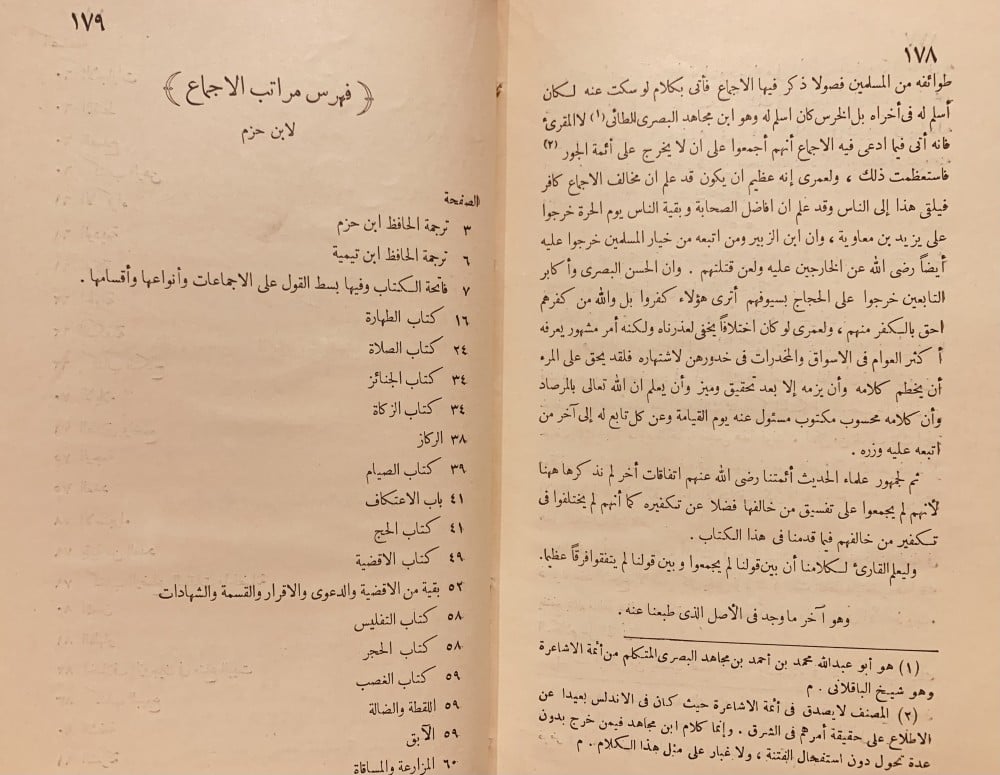 ١٧٨
طوائفه من المسلمين فصولا ذكر فيها الاجماع فأتى بكلام لو سكت عنه لكان
أسلم له فى أخراه بل الخرس كان اسلم له وهو ابن مجاهد البصرى للطائى (١) لا المقرئ
فانه أتى فيما ادعى فيه الاجماع أنهم أجمعوا على ان لا يخرج على أئمة الجور (٢)
فاستعظمت ذلك ، ولعمرى إنه عظيم ان يكون قد علم ان مخالف الاجماع كافر
فيلقى هذا إلى الناس وقد علم ان افاضل الصحابة و بقية الناس يوم الحرة خرجوا
على يزيد بن معاوية ، وان ابن الزبير ومن اتبعه من خيار المسلمين خرجوا عليه
أيضاً رضى الله عن الخارجين عليه ولعن قتلتهم . وان الحسن البصرى وأكابر
التابعين خرجوا على الحجاج بسيوفهم أترى هؤلاء كفروا بل والله من كفرهم
احق بالكفر منهم ، ولعمرى لو كان اختلافاً يخفى لعذرناه ولكنه أمر مشهور يعرفه
أكثر العوام فى الاسواق والمخدرات فى خدورهن لاشتهاره فلقد يحق على المرء
أن يخطم كلامه وأن يزمه إلا بعد تحقيق وميز وأن يعلم ان الله تعالى بالمرصاد
وأن كلامه محسوب مكتوب مسئول عنه يوم القيامة وعن كل تابع له إلى آخر من
اتبعه عليه وزره .
ثم لجمهور علماء الحديث أئمتنا رضى الله عنهم اتفاقات أخر لم نذكرها ههنا
لأنهم لم يجمعوا على تفسيق من خالفها فضلا عن تكفيره كما أنهم لم يختلفوا فى
تكفير من خالفهم فيما قدمنا فى هذا الكتاب .
وليعلم القارئ لكلامنا أن بين قولنا لم يجمعوا و بين قولنا لم يتفقوا فرقاً عظيما.
وهو آخر ما وجد فى الأصل الذى طبعنا عنه .
(١) هو أبو عبدالله محمد بن أحمد بن مجاهد البصرى المتكلم من أئمة الاشاعرة
وهو شيخ الباقلانى . م
(٢) المصنف لا يصدق فى أئمة الاشاعرة حيث كان فى الاندلس بعيدا عن
الاطلاع على حقيقة أمرهم فى الشرق . وإنما كلام ابن مجاهد فيمن خرج بدون
عدة تحول دون استفحال الفتنة ، ولا غبار على مثل هذا الكلام . م
١٧٩
﴿ فهرس مراتب الاجماع ﴾
لابن حزم
الصفحة
٣ ترجمة الحافظ ابن حزم
٦ ترجمة الحافظ ابن تيمية
٧ فاتحة الكتاب وفيها بسط القول على الاجماعات وأنواعها وأقسامها .
١٦ كتاب الطهارة
٢٤ كتاب الصلاة
٣٤ كتاب الجنائز
٣٤ كتاب الزكاة
٣٨ الركاز
٣٩ كتاب الصيام
٤١ باب الاعتكاف
٤١ كتاب الحج
٤٩ كتاب الاقضية
٥٢ بقية من الاقضية والدعوى والاقرار والقسمة والشهادات
٥٨ كتاب التفليس
٥٨ كتاب الحجر
٥٩ كتاب الغصب
٥٩ اللقطة والضالة
٥٩ الآبق
٦٠ المزارعة والمساقاة